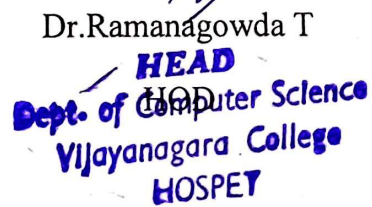 Dr.Ramanagowda T
HEAD
HOD
Dept. of Computer Science
Vijayanagara College
HOSPET